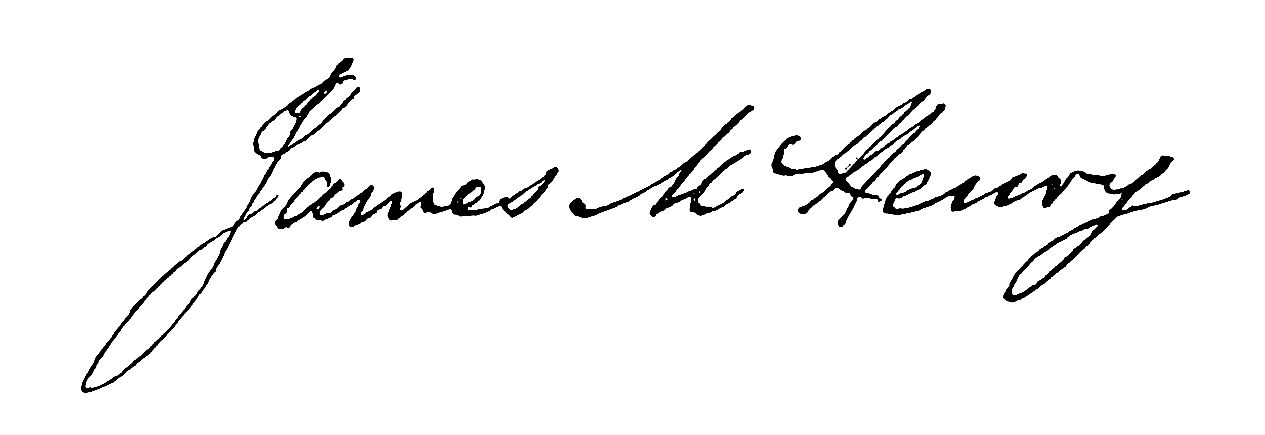 James McHenry